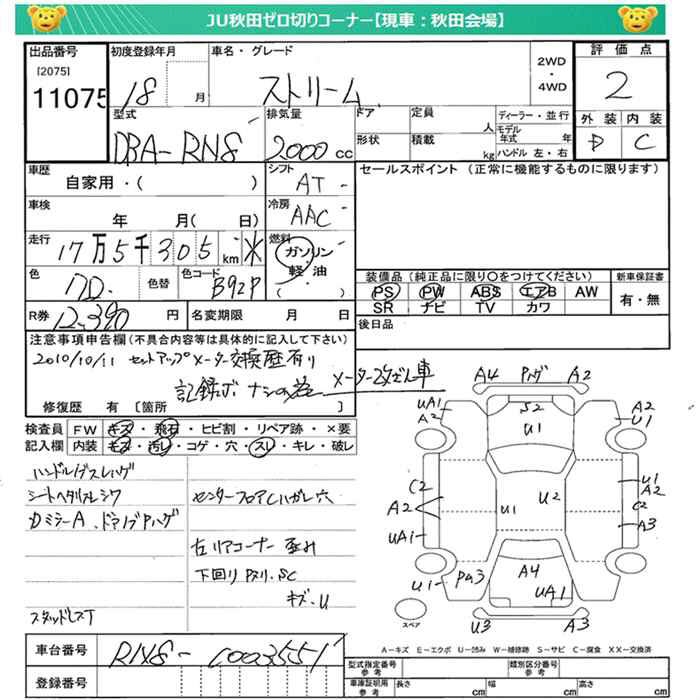 JU秋田ゼロ切りコーナー【現車：秋田会場】
出品番号
[2075]
11075
初度登録年月
18 月
車名・グレード
ストリーム
2WD
・
4WD
評価点
2
外装 内装
D C
型式
DBA-RN8
排気量
2000 cc
ドア
形状
定員
人
積載
kg
ディーラー・並行
モデル年式 年
ハンドル 左・右
車歴
自家用・( )
シフト
AT
セールスポイント (正常に機能するものに限ります)
車検
年 月( 日)
冷房
AAC
走行
17万5千305 km
燃料
ガソリン
軽・油
( )
色
色替
色コード
B92P
装備品 (純正品に限り○をつけてください)
PS PW ABS エアB AW
SR ナビ TV カワ
新車保証書
有・無
R券
12,390 円
名変期限 月 日
後日品
注意事項申告欄(不具合内容等は具体的に記入して下さい)
2010/10/11 セットアップメーター交換歴有り
記録ボ ナシの為 メーター改ざん車
修復歴 有 [箇所
検査員 FW キズ・飛石・ヒビ割・リペア跡・×要
記入欄 内装 キズ・汚レ・コゲ・穴・スレ・キレ・破レ
ハンドルイデスレハゲ
シートヘタリスレシワ
センターフロアCハガレ穴
左リアコーナー 歪み
下回り Pスリ.SC
キズ.U
スタッドレスT
A4 Pハゲ A2
UA1
A2
S2
U1
A2
U1
C2
A2
UA1
U1
U2
U1
A2
C2
A3
U1
Pね3
A4
UA1
U3
A3
スペア
A-キズ E-エクボ U-凹み W-補修跡 S-サビ C-腐食 XX-交換済
車台番号
RN8-1003551
登録番号
型式指定番号
参考
類別区分番号
参考
車庫証明用
参考
長さ cm 幅 cm 高さ cm